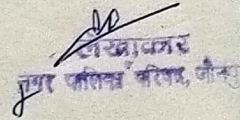 लेखाकार
नगर पालिका परिषद, जौनपुर